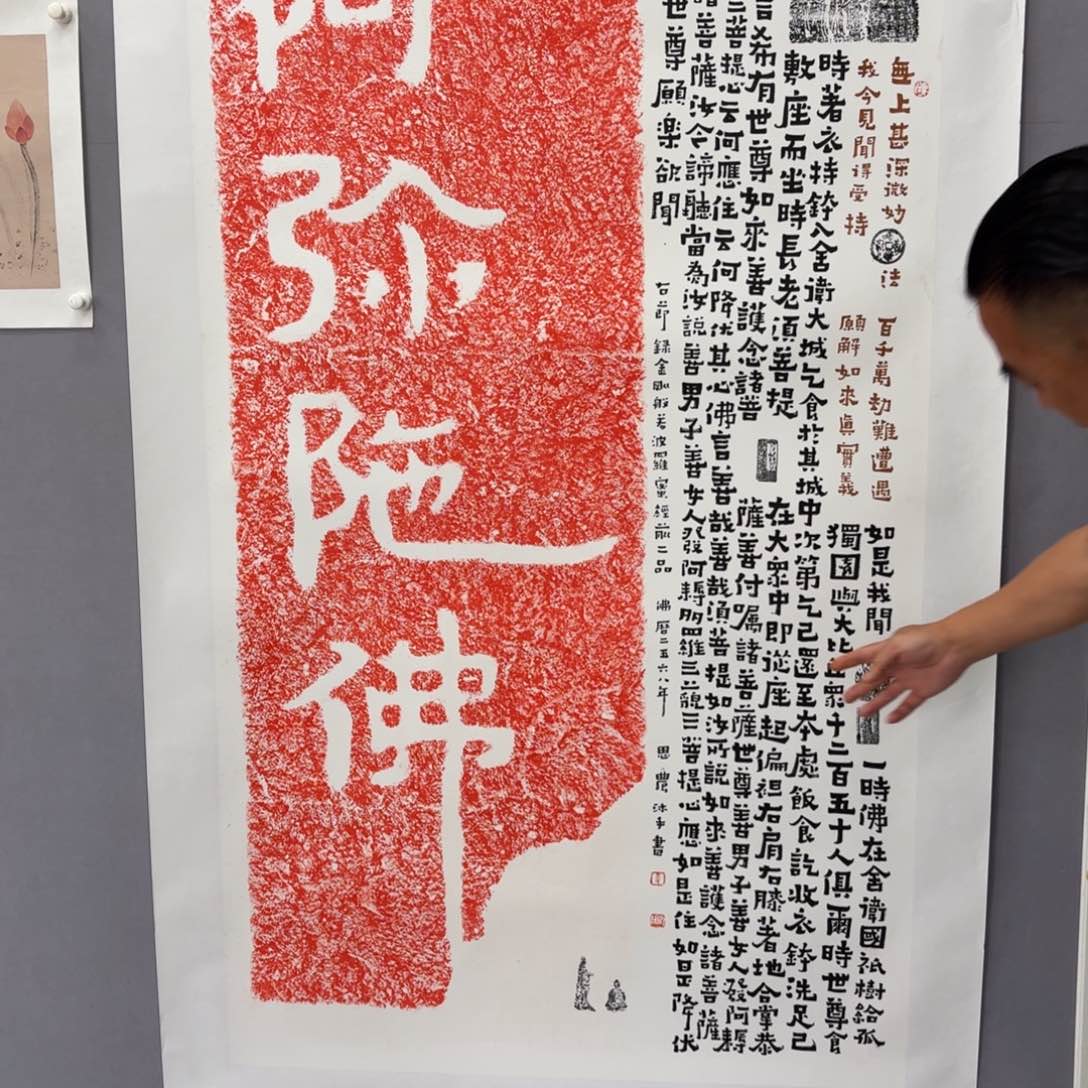 無上甚深微妙法 百千萬劫難遭遇
我今見聞得受持 願解如來真實義
如是我聞 一時佛在舍衛國祇樹給孤
獨園與大比丘眾千二百五十人俱爾時世尊食
時著衣持鉢入舍衛大城乞食於其城中次第乞已還至本處飯食訖收衣鉢洗足已
敷座而坐時長老須菩提 在大眾中即從座起偏袒右肩右膝著地合掌恭
言希有世尊如來善護念諸菩 薩善付囑諸菩薩世尊善男子善女人發阿耨
三菩提心云何應住云何降伏其心佛言善哉善哉須菩提如汝所說如來善護念諸菩薩
諸菩薩汝今諦聽當為汝說善男子善女人發阿耨多羅三藐三菩提心應如是住如是降伏
世尊願樂欲聞
右節錄金剛般若波羅蜜經前二品 佛曆二五六八年 思農沐手書
阿弥陁佛